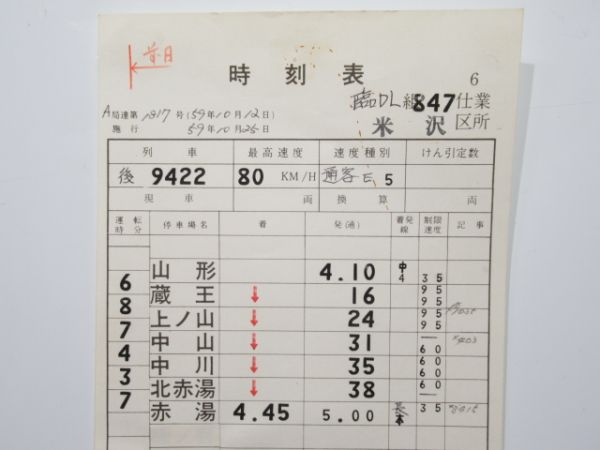 前日
時刻表 6
臨DL組847仕業
A局達第1817号(59年10月12日) 米沢区所
施行 59年10月25日
列車 最高速度 速度種別 けん引定数
後 9422 80 KM/H 通客E5
現車 両 換算 両
運転時分 停車場名 着 発(通) 着発線 制限速度 記事
山形 4.10 中4 35
6
蔵王 ↓ 16 95 95
8
上ノ山 ↓ 24 95 95
7
中山 ↓ 31 — 60
4
中川 ↓ 35 60
3
北赤湯 ↓ 38 60
7
赤湯 4.45 5.00 本 35